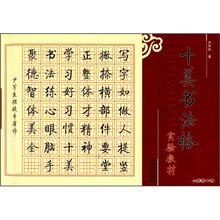 十美书法格
实验教材
写字如做人提竖
撇捺横部件要
正整体才精神
学习好习惯十美
书法练心眼脑手
聚德智体美全